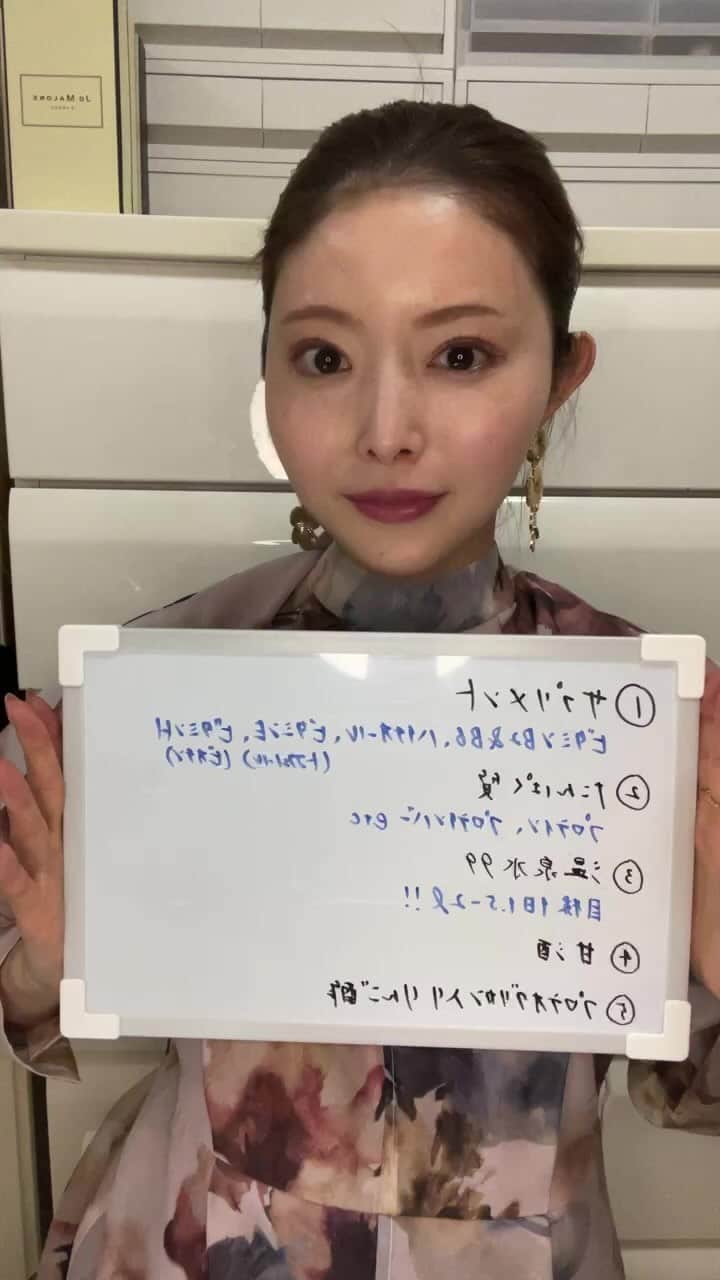 JO MALONE
LONDON
① サプリメント
ビタミンB2&B6、ハイチオール、ビタミンE、ビタミンH
(トコフェロール) (ビオチン)
② たんぱく質
プロテイン、プロテインバー etc
③ 温泉水99
目標 1日1.5-2ℓ!!
④ 甘酒
⑤ プロテオグリカン入りりんご酢